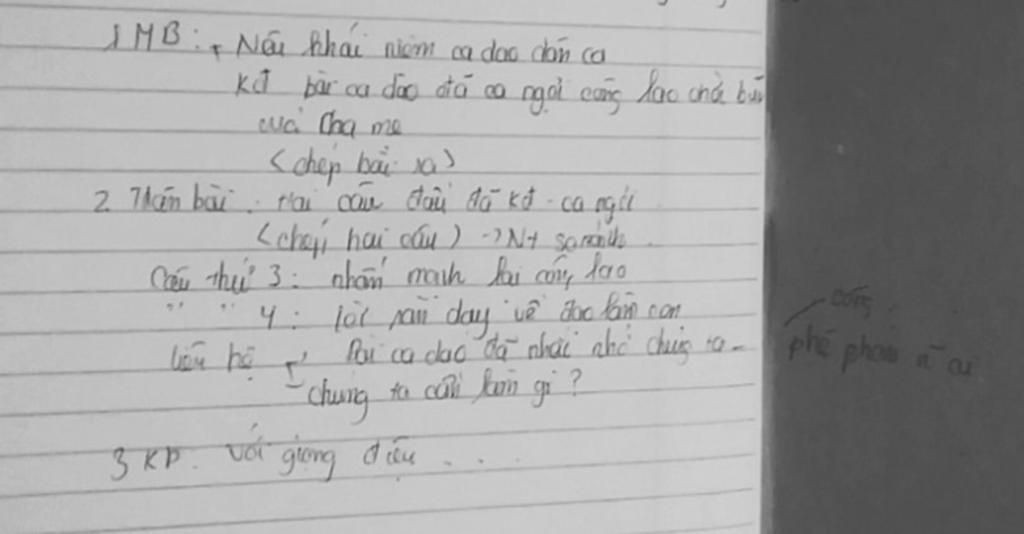 1 MB: + Nêu khái niệm ca dao dân ca
KĐ bài ca dao đã ca ngợi công lao
của Cha mẹ
(chép bài ra)
2. Thân bài. Hai câu đầu đã KĐ - ca ngợi
(chép hai câu) -> NT so sánh.
Câu thứ 3: nhấn mạnh lại công lao
" " 4: lời răn dạy về đạo làm con
công
Liên hệ bài ca dao đã nhắc nhở chúng ta -
phê phán n ai
- chúng ta cần làm gì?
3 KB. Với giọng điệu . . .